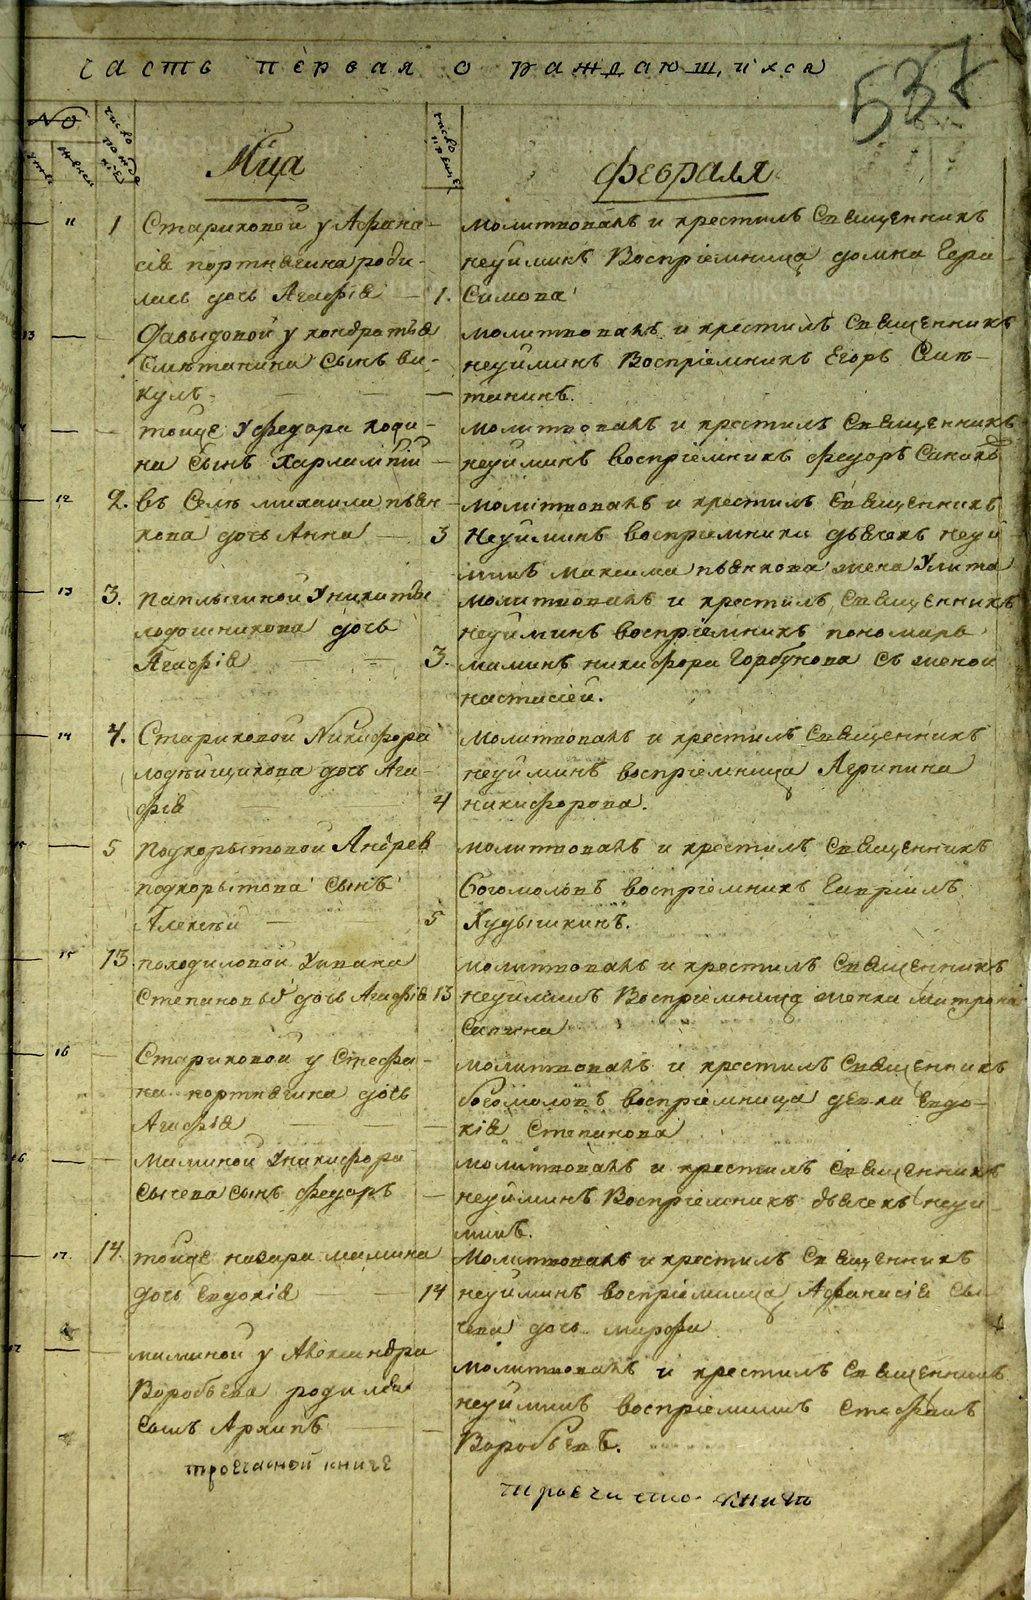 часть первая о раждающихся
537
№
число рожде нiе
Мца
число креще
Февраля
11 1 Стариковой у Афана-
сiя портнягина роди-
лась дочь Агафiя — 1.
молитвовалъ и крестилъ Священникъ
неуйминъ Воспрiемница домна Гера-
симова
13 — Давыдовой у кондратья
Сметанина сынъ ви-
кулъ —
молитвовалъ и крестилъ Священникъ
неуйминъ Воспрiемникъ Егоръ Сме-
танинъ.
— тойже у федора
на сынъ Харлампiй —
молитвовалъ и крестилъ Священникъ
неуйминъ воспрiемникъ федоръ
12 2. въ Селе михаила пьян
кова дочь Анна — 3
молитвовалъ и крестилъ Священникъ
Неуйминъ воспрiемники дьячекъ неуй
минъ максима пьянкова жена Улита
13 3. паплыгиной у никиты
лодошникова дочь
Агафiя — — 3.
молитвовалъ и крестилъ Священникъ
неуйминъ воспрiемникъ пономарь
маминъ никифора Горбунова съ женой
настасiей.
14 4. Стариковой Никифора
дочь Ага-
фiя 4
молитвовалъ и крестилъ Священникъ
неуйминъ воспрiемница Агрипина
никифорова.
15 — 5 подкорытовой Андрея
подкорытова сынъ
Алексей — 5
молитвовалъ и крестилъ Священникъ
Богомоловъ воспрiемникъ Гаврiилъ
Худышкинъ.
15 13 походиловой у ивана
Степановыхъ дочь Агафiя 13
молитвовалъ и крестилъ Священникъ
неуйминъ Воспрiемница женка матрона
Сапина
16 — Стариковой у Стефа-
на портнягина дочь
Агафiя —
молитвовалъ и крестилъ Священникъ
богомоловъ воспрiемница девка Евдо-
кiя Степанова
16 — маминой у никифора
Сычева сынъ федоръ —
молитвовалъ и крестилъ Священникъ
неуйминъ Воспрiемникъ дьячекъ неуй-
минъ.
17 14. тойже назара мамина
дочь Евдокiя — 14
Молитвовалъ и крестилъ Священникъ
неуйминъ воспрiемница Афанасiя Сы-
чева дочь марфа
17 — маминой у Александра
Воробьева родился
сынъ Архипъ —
молитвовалъ и крестилъ Священникъ
неуйминъ воспрiемникъ стефанъ
Воробьевъ.
троечасной книге